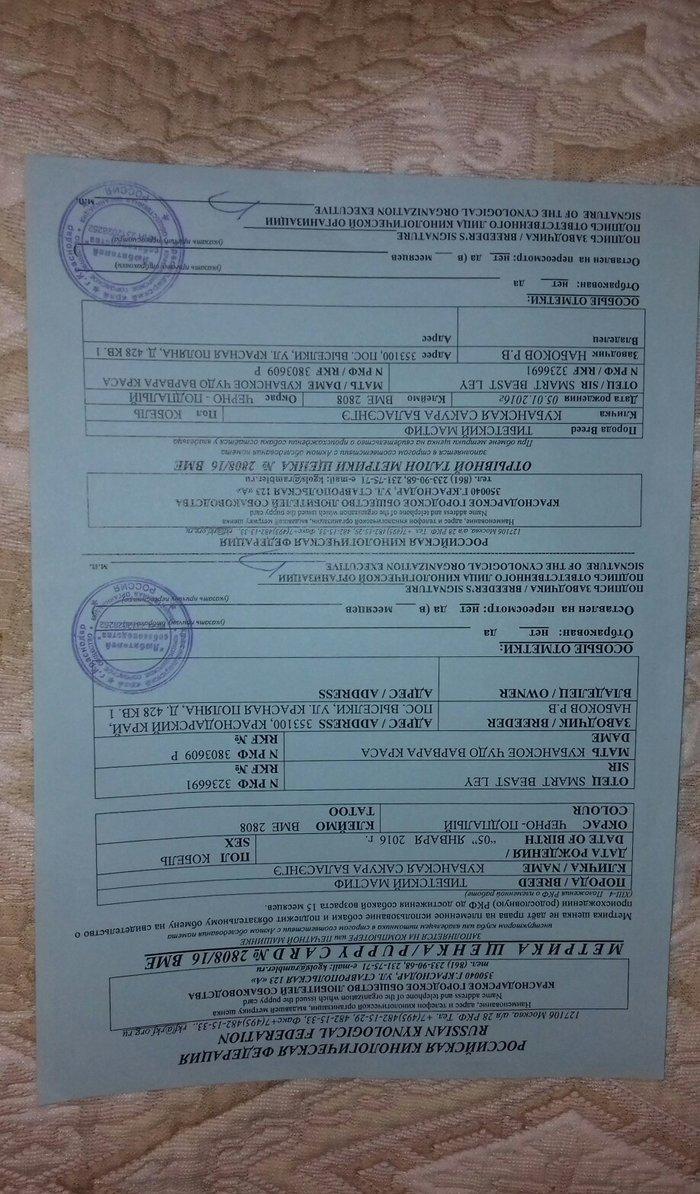 РОССИЙСКАЯ КИНОЛОГИЧЕСКАЯ ФЕДЕРАЦИЯ
RUSSIAN KYNOLOGICAL FEDERATION
127106 Москва, а/я 28 РКФ. Тел. +7(495)482-15-29, 482-15-33, Факс+7(495)482-15-33.. rkf@rkf.org.ru
Наименование, адрес и телефон кинологической организации, выдавшей метрику щенка
Name address and telephone of the organization which issued the puppy card
КРАСНОДАРСКОЕ ГОРОДСКОЕ ОБЩЕСТВО ЛЮБИТЕЛЕЙ СОБАКОВОДСТВА
350040 Г.КРАСНОДАР, УЛ. СТАВРОПОЛЬСКАЯ 123 «А»
тел. (861) 233-90-68, 231-75-71 e-mail: kgols@rambler.ru
МЕТРИКА ЩЕНКА/PUPPY CARD№ 2808/16 BME
ЗАПОЛНЯЕТСЯ НА КОМПЬЮТЕРЕ или ПЕЧАТНОЙ МАШИНКЕ
инструктором клуба или владельцем питомника в строгом соответствии с Актом обследования помета
Метрика щенка не даёт права на племенное использование собаки и подлежит обязательному обмену на свидетельство о
происхождении (родословную) РКФ до достижения собакой возраста 15 месяцев.
(XIII-4 Положения РКФ о племенной работе)
ПОРОДА / BREED ТИБЕТСКИЙ МАСТИФ
КЛИЧКА / NAME КУБАНСКАЯ САКУРА БАЛАСЭНГЭ
ДАТА РОЖДЕНИЯ / DATE OF BIRTH "05" ЯНВАРЯ 2016 г.
ПОЛ КОБЕЛЬ
SEX
ОКРАС ЧЕРНО- ПОДПАЛЫЙ
COLOUR
КЛЕЙМО BME 2808
TATOO
ОТЕЦ SMART BEAST LEY
SIR
N РКФ 3236691
RKF №
МАТЬ КУБАНСКОЕ ЧУДО ВАРВАРА КРАСА
DAME
N РКФ 3803609 Р
RKF №
ЗАВОДЧИК / BREEDER
НАБОКОВ Р.В
АДРЕС / ADDRESS 353100, КРАСНОДАРСКИЙ КРАЙ,
ПОС. ВЫСЕЛКИ, УЛ. КРАСНАЯ ПОЛЯНА, Д. 428 КВ. 1
ВЛАДЕЛЕЦ / OWNER
АДРЕС / ADDRESS
ОСОБЫЕ ОТМЕТКИ:
Отбракован: нет да
(указать причину отбраковки)
Оставлен на пересмотр: нет да (в месяцев
(указать причину пересмотра)
ПОДПИСЬ ЗАВОДЧИКА / BREEDER'S SIGNATURE
ПОДПИСЬ ОТВЕТСТВЕННОГО ЛИЦА КИНОЛОГИЧЕСКОЙ ОРГАНИЗАЦИИ
SIGNATURE OF THE CYNOLOGICAL ORGANIZATION EXECUTIVE
М.П.
РОССИЙСКАЯ КИНОЛОГИЧЕСКАЯ ФЕДЕРАЦИЯ
127106 Москва, а/я 28 РКФ. Тел. +7(495)482-15-29, 482-15-33, Факс+7(495)482-15-33.. rkf@rkf.org.ru
Наименование, адрес и телефон кинологической организации, выдавшей метрику щенка
Name address and telephone of the organization which issued the puppy card
КРАСНОДАРСКОЕ ГОРОДСКОЕ ОБЩЕСТВО ЛЮБИТЕЛЕЙ СОБАКОВОДСТВА
350040 Г.КРАСНОДАР, УЛ. СТАВРОПОЛЬСКАЯ 123 «А»
тел. (861) 233-90-68, 231-75-71 e-mail: kgols@rambler.ru
ОТРЫВНОЙ ТАЛОН МЕТРИКИ ЩЕНКА № 2808/16 BME
заполняется в строгом соответствии с Актом обследования помета
При обмене метрики щенка на свидетельство о происхождении собаки остаётся у владельца
Порода Breed ТИБЕТСКИЙ МАСТИФ
Кличка КУБАНСКАЯ САКУРА БАЛАСЭНГЭ
Пол КОБЕЛЬ
Дата рождения 05.01.2016г
Клеймо BME 2808
Окрас ЧЕРНО - ПОДПАЛЫЙ
ОТЕЦ / SIR SMART BEAST LEY
N РКФ / RKF 3236691
МАТЬ / DAME КУБАНСКОЕ ЧУДО ВАРВАРА КРАСА
N РКФ / RKF 3803609 Р
Заводчик НАБОКОВ Р.В
Адрес 353100, ПОС. ВЫСЕЛКИ, УЛ. КРАСНАЯ ПОЛЯНА, Д. 428 КВ. 1
Владелец
Адрес
ОСОБЫЕ ОТМЕТКИ:
Отбракован: нет да
(указать причину отбраковки)
Оставлен на пересмотр: нет да (в месяцев
(указать причину пересмотра)
ПОДПИСЬ ЗАВОДЧИКА / BREEDER'S SIGNATURE
ПОДПИСЬ ОТВЕТСТВЕННОГО ЛИЦА КИНОЛОГИЧЕСКОЙ ОРГАНИЗАЦИИ
SIGNATURE OF THE CYNOLOGICAL ORGANIZATION EXECUTIVE
М.П.